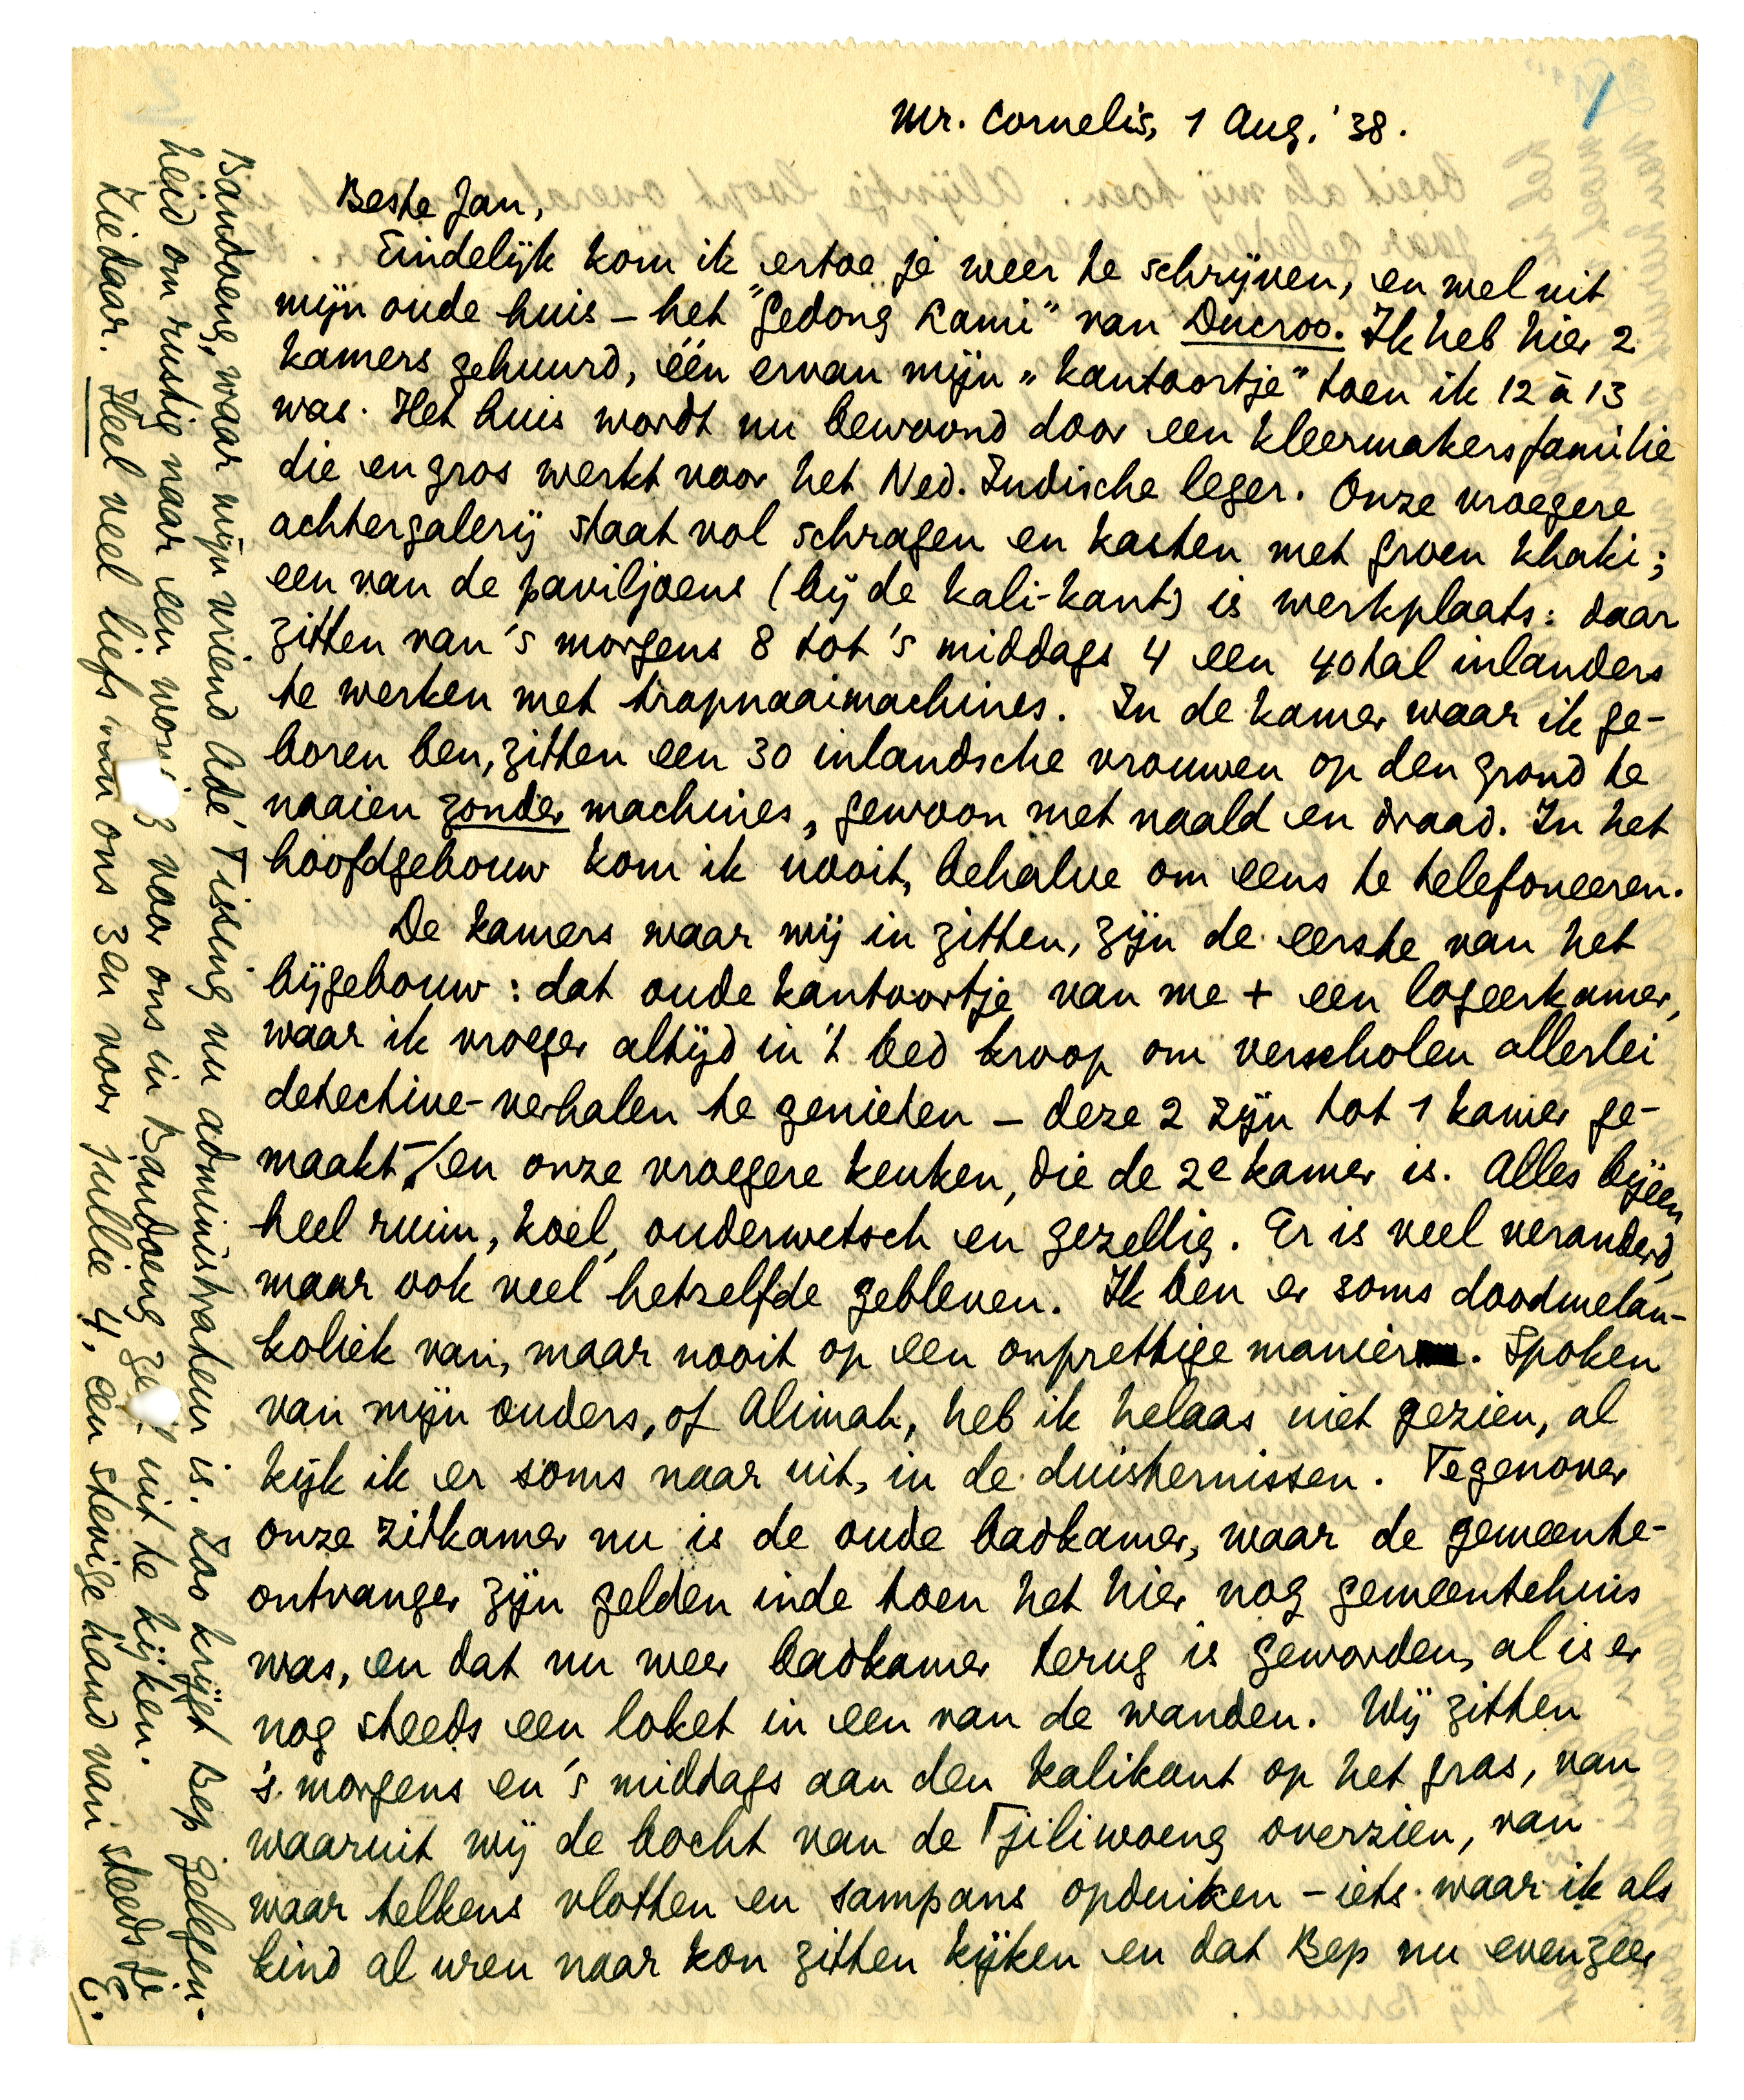 1
Mr. Cornelis, 1 Aug. '38.
Beste Jan,
Eindelijk kom ik ertoe je weer te schrijven, en wel uit
mijn oude huis – het "Gedong Lami" van Ducroo. Ik heb hier 2
kamers gehuurd, één ervan mijn „kantoortje" toen ik 12 à 13
was. Het huis wordt nu bewoond door een kleermakersfamilie
die en gros werkt voor het Ned. Indische leger. Onze vroegere
achtergalerij staat vol schragen en kasten met groen khaki;
een van de paviljoens (bij de kali-kant) is werkplaats: daar
zitten van 's morgens 8 tot 's middags 4 een 40tal inlanders
te werken met trapnaaimachines. In de kamer waar ik ge-
boren ben, zitten een 30 inlandsche vrouwen op den grond te
naaien zonder machines, gewoon met naald en draad. In het
hoofdgebouw kom ik nooit, behalve om eens te telefoneeren.
De kamers waar wij in zitten, zijn de eerste van het
bijgebouw: dat oude kantoortje van me + een logeerkamer,
waar ik vroeger altijd in 't bed kroop om verscholen allerlei
detective-verhalen te genieten – deze 2 zijn tot 1 kamer ge-
maakt – / en onze vroegere keuken, die de 2e kamer is. Alles bijeen
heel ruim, koel, ouderwetsch en gezellig. Er is veel veranderd,
maar ook veel hetzelfde gebleven. Ik ben er soms doodmelan-
koliek van, maar nooit op een onprettige manier. Spoken
van mijn ouders, of Alimah, heb ik helaas niet gezien, al
kijk ik er soms naar uit, in de duisternissen. Tegenover
onze zitkamer nu is de oude badkamer, waar de gemeente-
ontvanger zijn gelden inde toen het hier nog gemeentehuis
was, en dat nu weer badkamer terug is geworden, al is er
nog steeds een loket in een van de wanden. Wij zitten
's morgens en 's middags aan den kalikant op het gras, van
waaruit wij de bocht van de Tjiliwoeng overzien, van
waar telkens vlotten en sampans opduiken – iets waar ik als
kind al uren naar kon zitten kijken en dat Bep nu evenzeer
Bandoeng, waar mijn vriend Adé Tissing nu administrateur is. Zoo krijgt Bep gelegen-
heid om rustig naar een voor ons in Bandoeng uit te kijken.
Ziedaar. Heel veel liefs van ons 3en voor jullie 4, een stevige hand van steeds je
E.